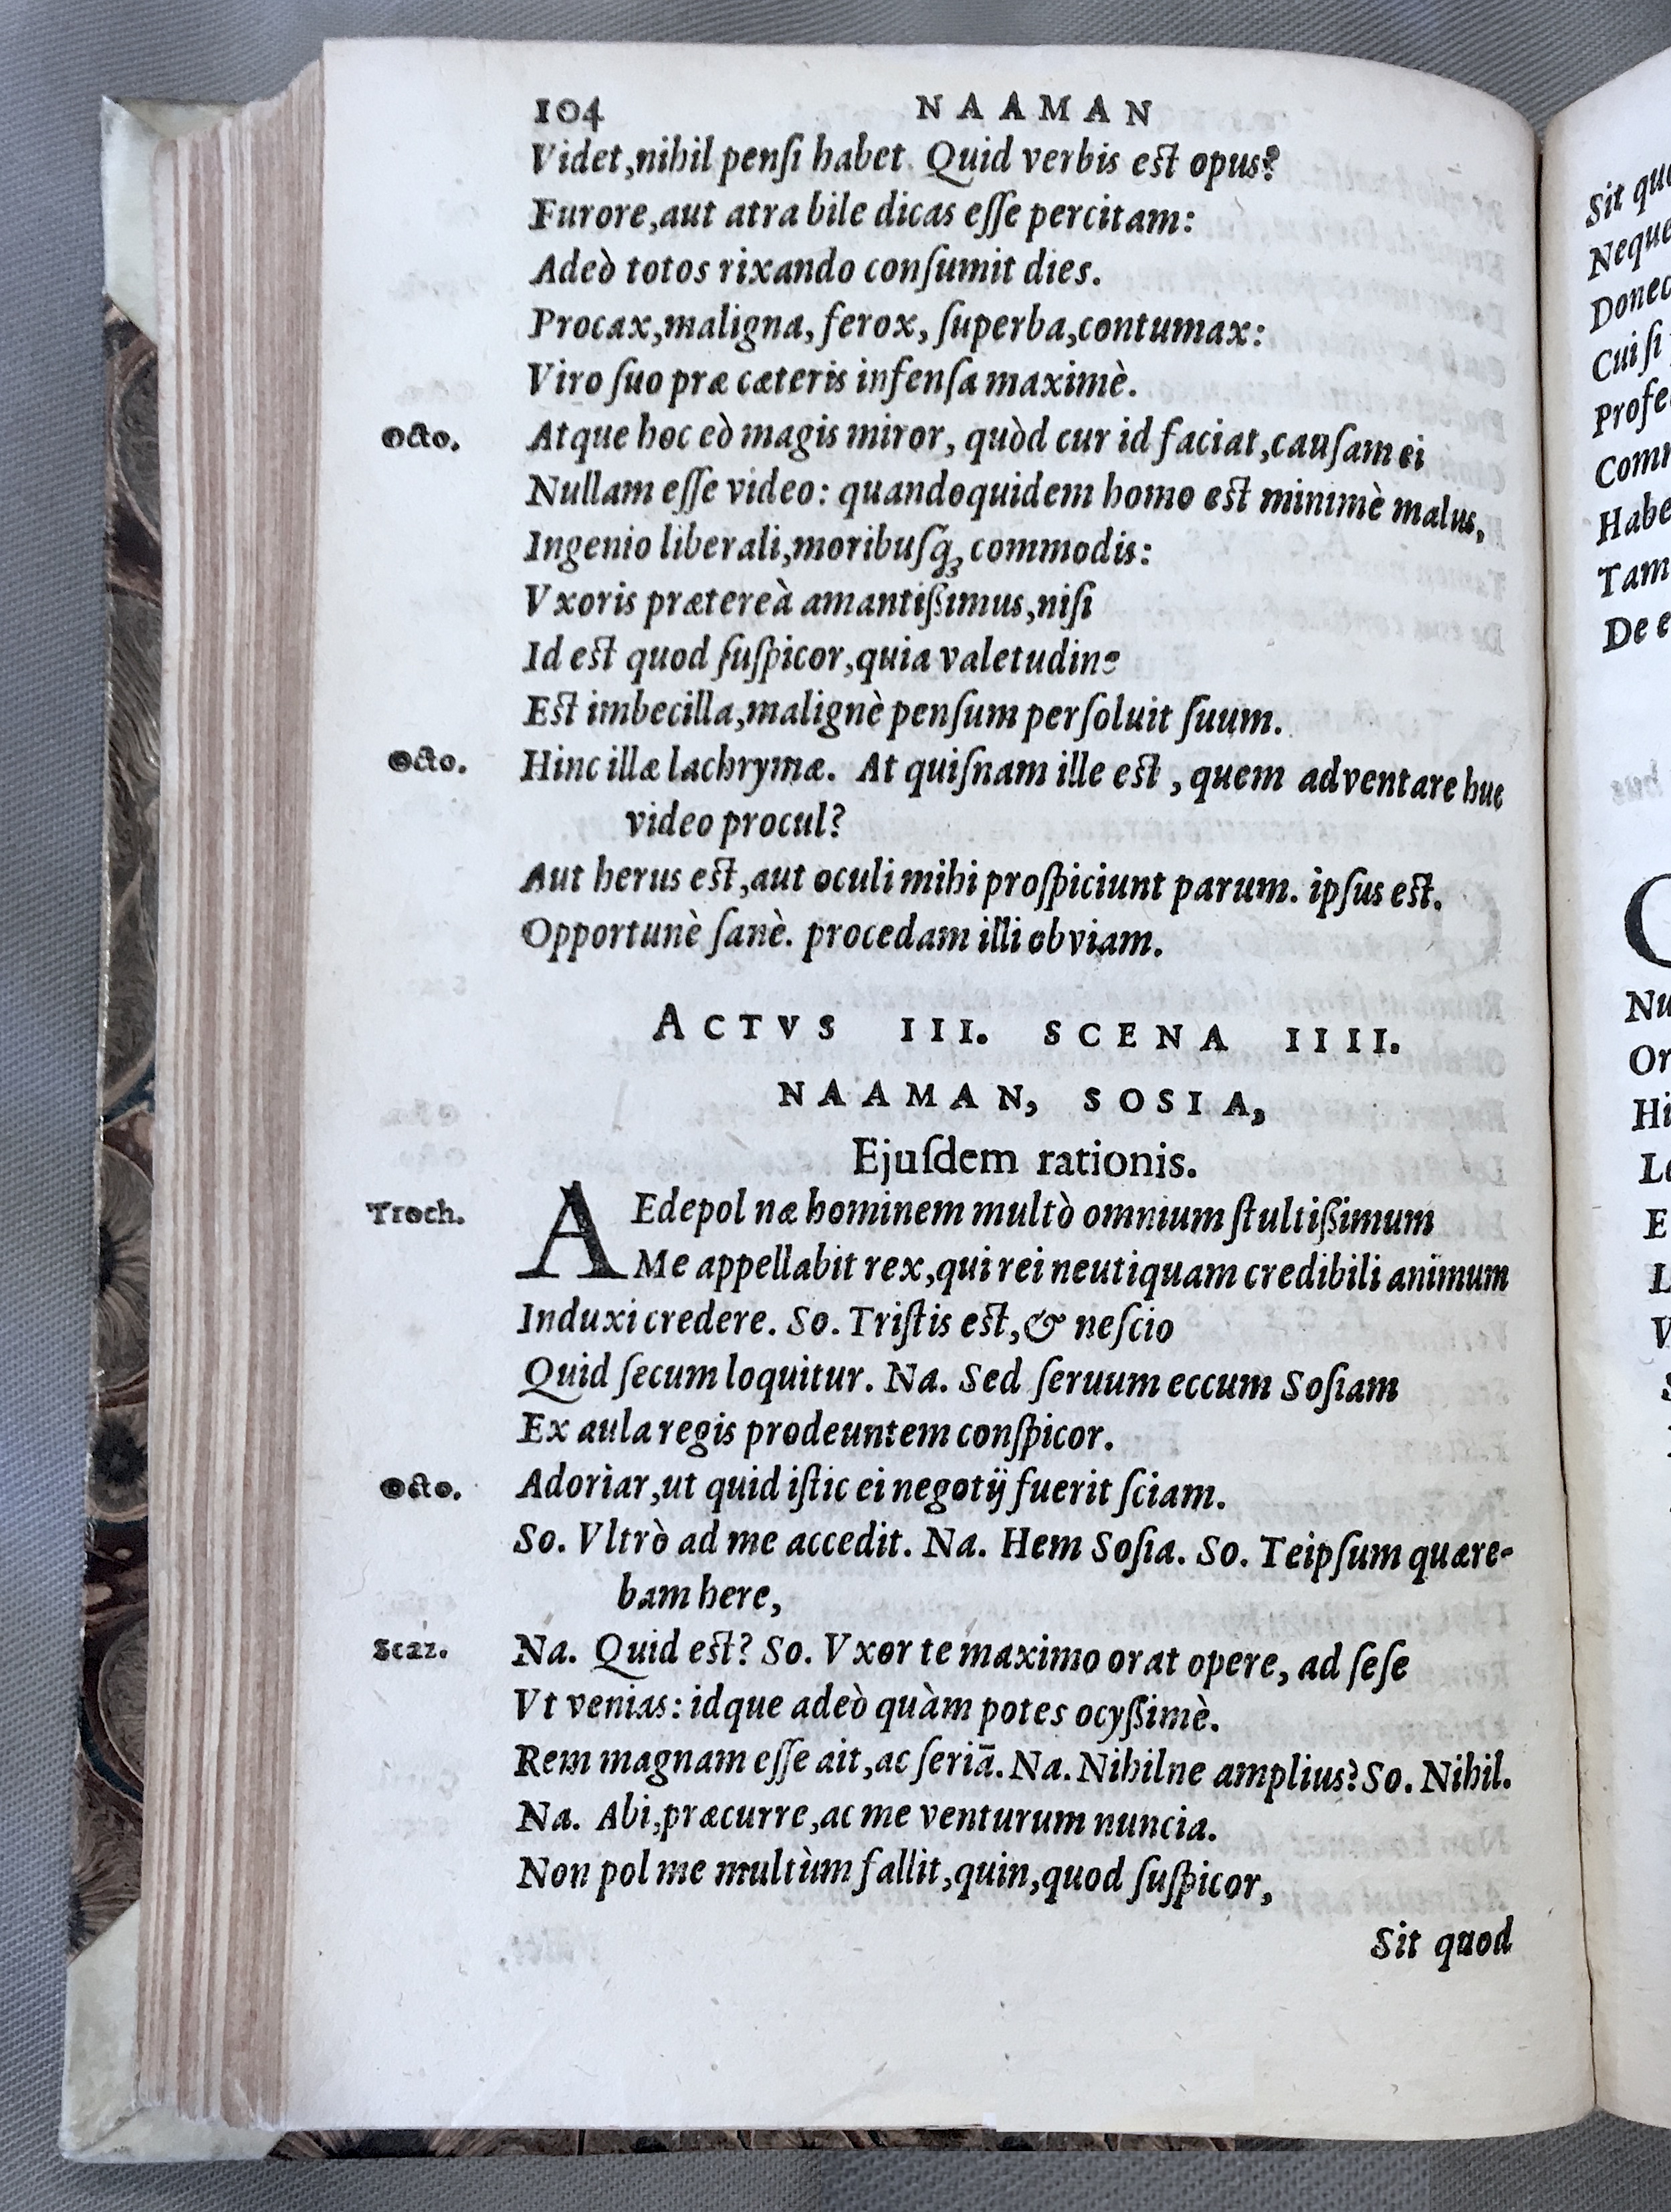 104 NAAMAN
Videt,nihil penſi habet. Quid verbis eſt opus?
Furore,aut atra bile dicas eſſe percitam:
Adeò totos rixando conſumit dies.
Procax,maligna, ferox, ſuperba,contumax:
Viro ſuo præ cæteris infenſa maximè.
Octo. Atque hoc eò magis miror, quòd cur id faciat,cauſam ei
Nullam eſſe video: quandoquidem homo eſt minimè malus,
Ingenio liberali,moribuſq́ꝫ commodis:
Vxoris prætereà amantißimus,niſi
Id eſt quod ſuſpicor,quia valetudine
Eſt imbecilla,malignè penſum perſoluit ſuum.
Octo. Hinc illæ lachrymæ. At quiſnam ille eſt , quem adventare huc
video procul?
Aut herus eſt,aut oculi mihi proſpiciunt parum. ipſus eſt.
Opportunè ſanè. procedam illi obviam.
ACTVS III. SCENA IIII.
NAAMAN, SOSIA,
Ejuſdem rationis.
Troch. AEdepol næ hominem multò omnium ſtultißimum
Me appellabit rex,qui rei neutiquam credibili animum
Induxi credere. So. Triſtis eſt,& neſcio
Quid ſecum loquitur. Na. Sed ſeruum eccum Soſiam
Ex aula regis prodeuntem conſpicor.
Octo. Adoriar,ut quid iſtic ei negotij fuerit ſciam.
So. Vltrò ad me accedit. Na. Hem Soſia. So. Teipſum quære-
bam here,
Scaz. Na. Quid eſt? So. Vxor te maximo orat opere, ad ſeſe
Vt venias: idque adeò quàm potes ocyßimè.
Rem magnam eſſe ait,ac ſeriā. Na. Nihilne amplius? So. Nihil.
Na. Abi,præcurre,ac me venturum nuncia.
Non pol me multùm fallit,quin,quod ſuſpicor,
Sit quod
Sit quo
Neque
Donec
Cui ſi
Profe
Com
Habe
Tam
De e
Nu
Or
Hi